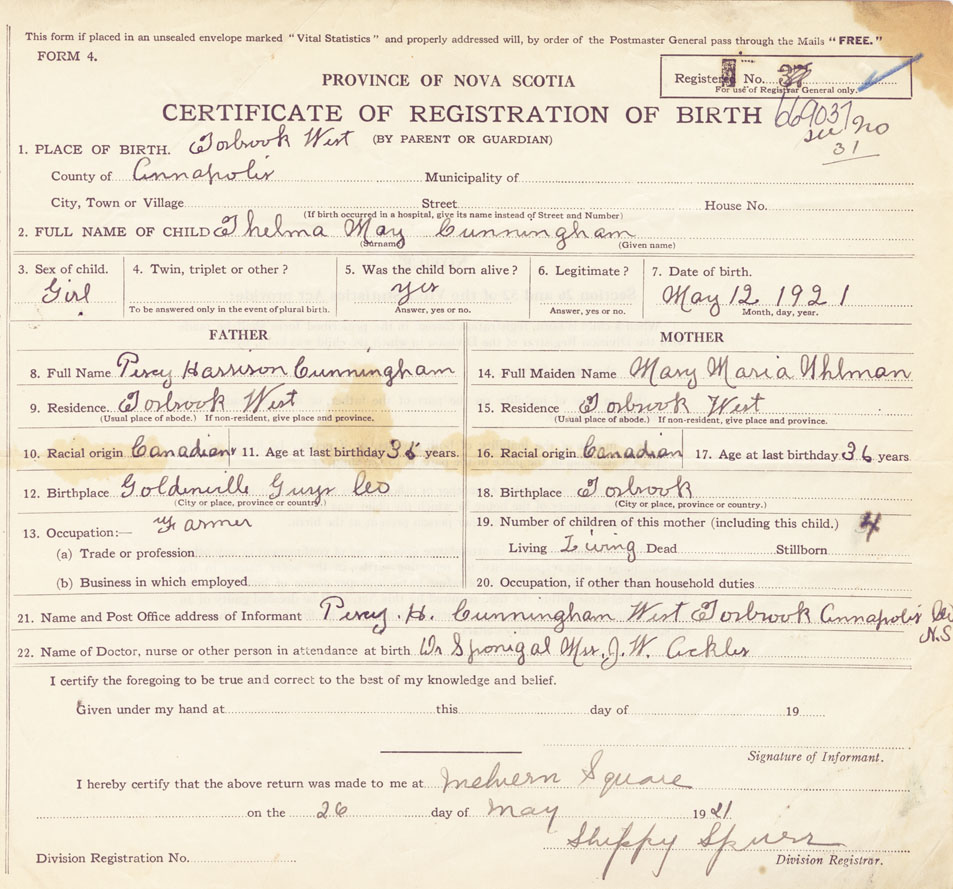 This form if placed in an unsealed envelope marked "Vital Statistics" and properly addressed will, by order of the Postmaster General pass through the Mails "FREE."
FORM 4.
PROVINCE OF NOVA SCOTIA
Registered No.
For use of Registrar General only.
CERTIFICATE OF REGISTRATION OF BIRTH 669037
(BY PARENT OR GUARDIAN) see No 31
1. PLACE OF BIRTH. Torbrook West
County of Annapolis Municipality of
City, Town or Village Street House No.
(If birth occurred in a hospital, give its name instead of Street and Number)
2. FULL NAME OF CHILD Thelma May Cunningham
(Surname) (Given name)
3. Sex of child. 4. Twin, triplet or other? 5. Was the child born alive? 6. Legitimate? 7. Date of birth.
Girl yes May 12 1921
To be answered only in the event of plural birth. Answer, yes or no. Answer, yes or no. Month, day, year.
FATHER MOTHER
8. Full Name Percy Harrison Cunningham 14. Full Maiden Name Mary Maria Uhlman
9. Residence. Torbrook West 15. Residence Torbrook West
(Usual place of abode.) If non-resident, give place and province. (Usual place of abode.) If non-resident, give place and province.
10. Racial origin Canadian 11. Age at last birthday years. 16. Racial origin Canadian 17. Age at last birthday 36 years
12. Birthplace Goldenville Guys Co 18. Birthplace Torbrook
(City or place, province or country.) (City or place, province or country.)
13. Occupation:— Farmer 19. Number of children of this mother (including this child.) 4
(a) Trade or profession Living Living Dead Stillborn
(b) Business in which employed 20. Occupation, if other than household duties
21. Name and Post Office address of Informant Percy. H. Cunningham West Torbrook Annapolis Co N.S
22. Name of Doctor, nurse or other person in attendance at birth Dr Sponigal Mrs. J. W. Ackles
I certify the foregoing to be true and correct to the best of my knowledge and belief.
Given under my hand at this day of 19
Signature of Informant.
I hereby certify that the above return was made to me at Melvern Square
on the 26 day of May 1921
Shippy Spurr
Division Registration No. Division Registrar.